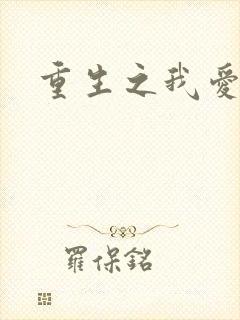 重生之我愛
羅保銘